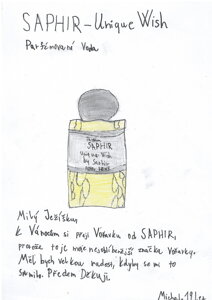 SAPHIR - Unique Wish
Parfémovaná Voda
SAPHIR
Unique Wish
by Saphir
Milý Ježíšku,
k Vánocům si přeji Voňavku od SAPHIR,
protože to je moje nejoblíbenější značka Voňavky.
Měl bych velkou radost, kdyby se mi to
splnilo. Předem Děkuji.
Michal, 19 let